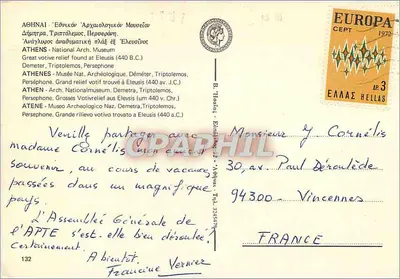 ΑΘΗΝΑΙ - Ἐθνικὸν Ἀρχαιολογικὸν Μουσεῖον
Δήμητρα, Τριπτόλεμος, Περσεφόνη.
Ἀνάγλυφος ἀναθηματικὴ πλὰξ ἐξ Ἐλευσῖνος
ATHENS - National Arch. Museum
Great votive relief found at Eleusis (440 B.C.)
Demeter, Triptolemos, Persephone
ATHENES - Musée Nat. Archéologique, Déméter, Triptolemos,
Persephone. Grand relief votif trouvé à Eleusis (440 av. J.C.)
ATHEN - Arch. Nationalmuseum, Demetra, Triptolemos,
Persephone. Grosses Votivrelief aus Eleusis (um 440 v. Chr.)
ATENE - Museo Archeologico Naz. Demetra, Triptolemos,
Persephone. Grande rilievo votivo trovato a Eleusis (440 av. C.)
Veuillez partager avec
madame Cornélis mon amical
souvenir, au cours de vacances
passées dans un magnifique
pays.
L'Assemblée Générale de
l'APTE s'est-elle bien déroulée?
Certainement.
A bientôt.
Francine Vernier
132
EUROPA
CEPT
1972
ΔΡ. 3
ΕΛΛΑΣ HELLAS
Monsieur Y Cornélis
30, av. Paul Déroulède
94300 - Vincennes
FRANCE
CPARAMA